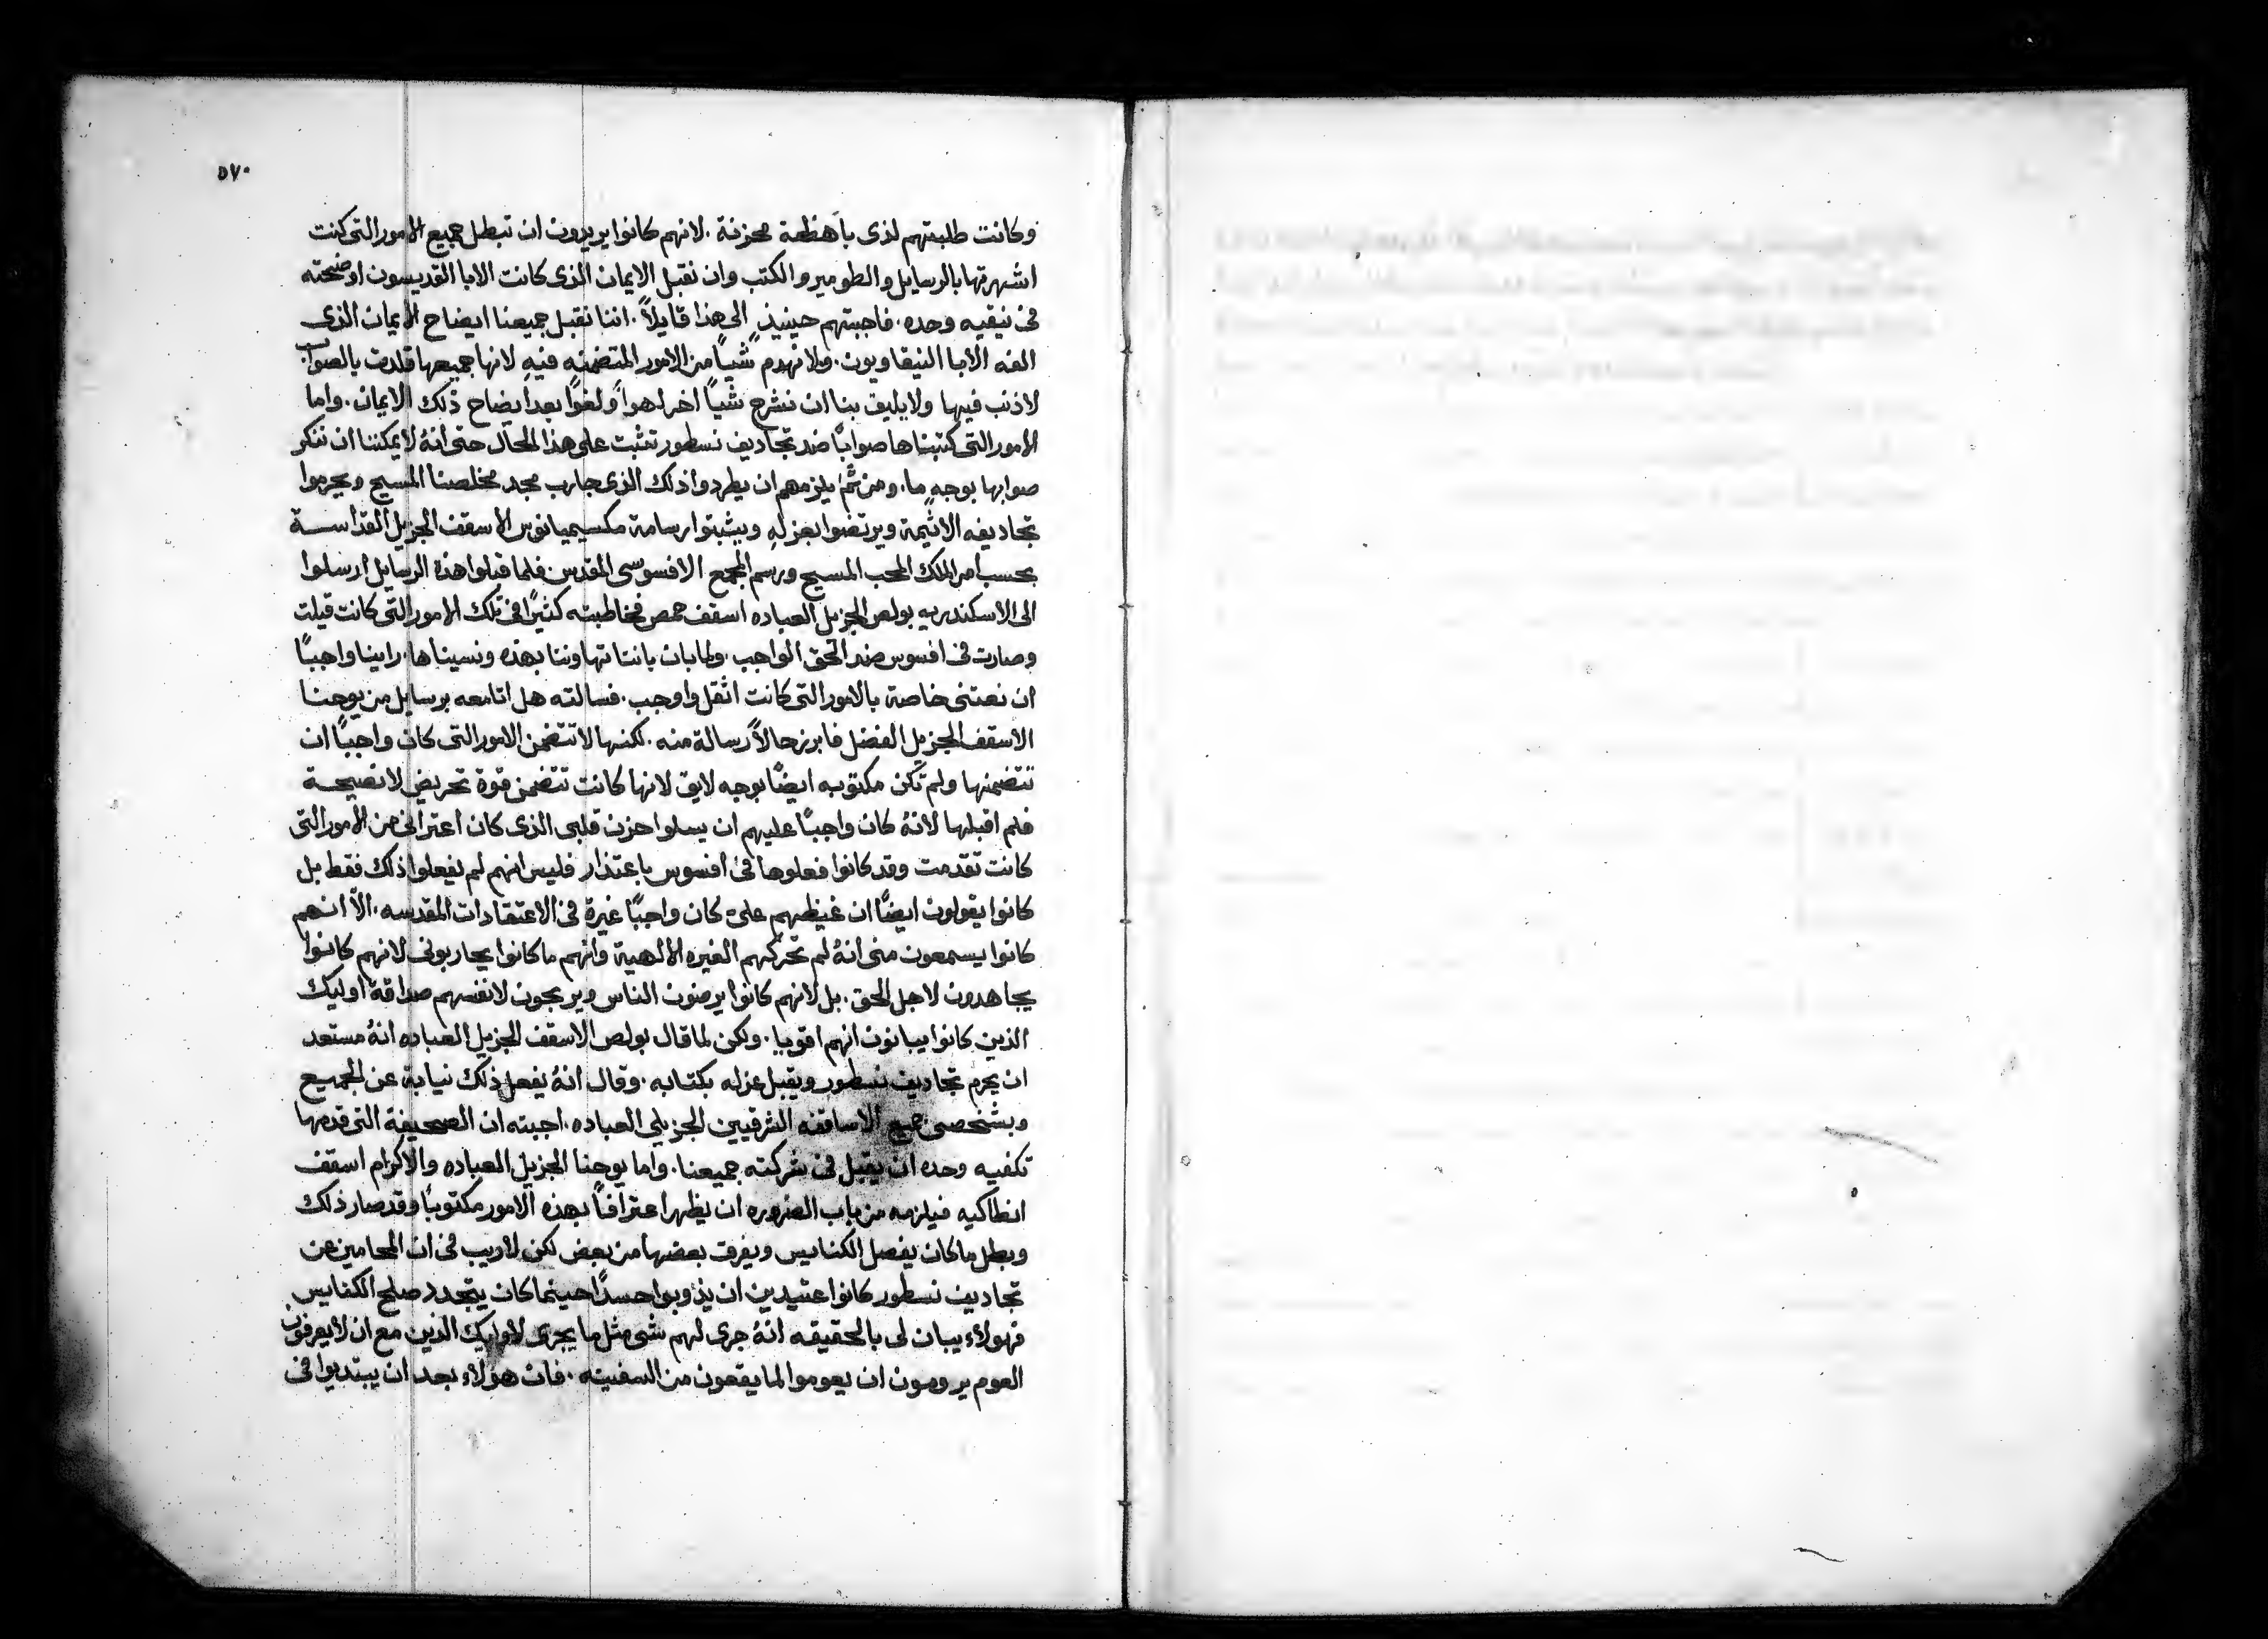 ٥٧٠
وكانت طلبتهم لذى باهظة محزنة. لانهم كانوا يريدون ان تبطل جميع الامور التى كنت
اشهرتها بالرسايل والطومير والكتب وان نقبل الايمان الذى كانت الابا القديسون اوضحته
فى نيقيه وحده. فاجبتهم حينيذٍ الى هذا قايلاً. اننا نقبل جميعنا ايضاح الايمان الذى
الفه الابا النيقاويون. ولا نهدم شياً من الامور المتضمنه فيه لانها جميعها قلدت بالصواب.
لاذنب فيها ولا يليق بنا ان نشرح شياً اخر اهواً ولغواً بعد ايضاح ذلك الايمان. واما
الامور التى كتبناها صواباً ضد تجاديف نسطور تثبت على هذا الحال حتى انهُ لا يمكننا ان ننكر
صوابها بوجهٍ ما. ومن ثمَّ يلزمهم ان يطردوا ذلك الذى حارب مجد مخلصنا المسيح ويحرموا
تجاديفه الاثيمة ويرتضوا بعزله ويثبتوا رسامة مكسيميانوس الاسقف الجزيل القداسة
بحسب امر الملك المحب المسيح ورسم المجمع الافسوسى المقدس فلما قبلوا هذهُ الرسايل ارسلوا
الى الاسكندريه بولص الجزيل العباده اسقف حمص فخاطبته كثيرًا فى تلك الامور التى كانت قيلت
وصارت فى افسوس ضد الحق الواجب. ولما بان باننا تهاوننا بهذه ونسيناها. راينا واجبًا
ان نعتنى خاصة بالامور التى كانت اثقل واوجب. فسالته هل اتا معه برسايل من يوحنا
الاسقف الجزيل الفضل فابرز حالاً رسالة منه. لكنها لا تتضمن الامور التى كان واجبًا ان
تتضمنها ولم تكن مكتوبه ايضًا بوجه لايق لانها كانت تتضمن قوة تحريض لا نصيحة
فلم اقبلها لانهُ كان واجبًا عليهم ان يسلوا حزن قلبى الذى كان اعترانى من الامور التى
كانت تقدمت وقد كانوا فعلوها فى افسوس باعتذار فليس انهم لم يفعلوا ذلك فقط بل
كانوا يقولون ايضًا ان غيظهم علىَّ كان واجبًا غيرة فى الاعتقادات المقدسه. الّا انهم
كانوا يسمعون منى انهُ لم تحركهم الغيره الالهية وانهم ما كانوا يحاربونى لانهم كانوا
يجاهدون لاجل الحق. بل لانهم كانوا يرضون الناس ويربحون لانفسهم صداقة اوليك
الذين كانوا يبانون انهم اقويا. ولكن لما قال بولص الاسقف الجزيل العباده انهُ مستعد
ان يحرم تجاديف نسطور ويقبل عزله بكتابه. وقال انهُ يفعل ذلك نيابة عن الجميع
وبشخص جميع الاساقفه الشرقيين الجزيلى العباده. اجبته ان الصحيفة التى قدمها
تكفيه وحده ان يقبل فى شركته جميعنا. واما يوحنا الجزيل العباده والاكرام اسقف
انطاكيه فيلزمه من باب الضروره ان يظهر اعترافاً بهذه الامور مكتوبًا وقد صار ذلك
وبطل ما كان يفصل الكنايس ويفرق بعضها من بعض لكن لا ريب فى ان المحامين عن
تجاديف نسطور كانوا عتيدين ان يذوبوا حسدًا حينما كان يتجدد صلح الكنايس.
فهولاء يبان لى بالحقيقه انهُ جرى لهم شى مثل ما يجرى لاوليك الذين مع ان لا يعرفون
العوم يرومون ان يعوموا لما يقعون من السفينه. فان هولاء بعد ان يبتديوا فى